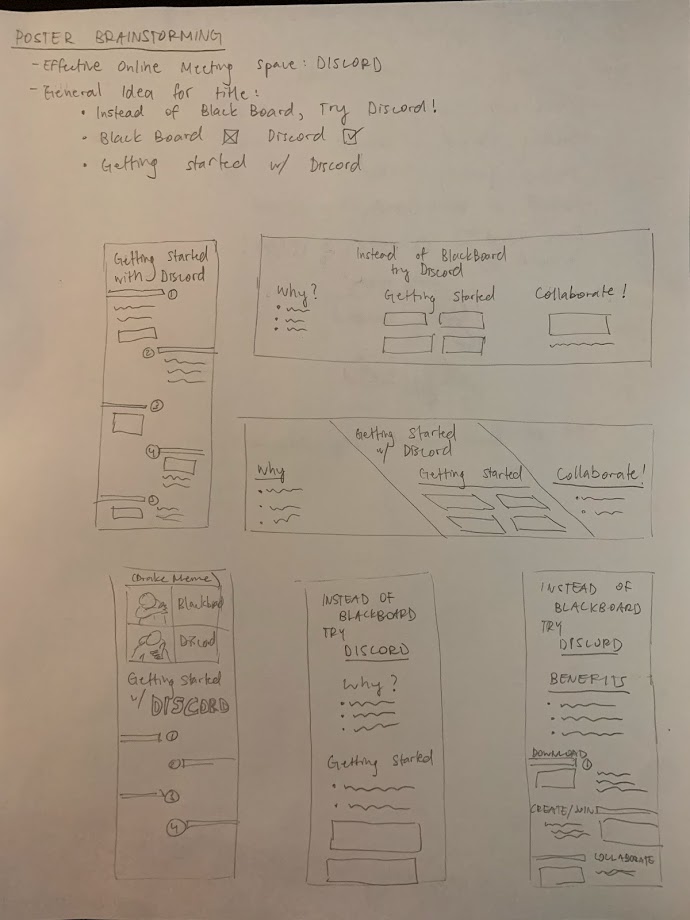 POSTER BRAINSTORMING
- Effective Online Meeting Space: DISCORD
- General Idea for title:
• Instead of Black Board, Try Discord!
• Black Board ☒ Discord ☑
• Getting started w/ Discord
Getting Started
with Discord
1
2
3
4
5
Instead of BlackBoard
try Discord
Why?
Getting Started
Collaborate!
Getting Started
w/ Discord
Why
Getting Started
Collaborate!
(Drake Meme)
Blackboard
Discord
Getting Started
w/ DISCORD
1
2
3
4
INSTEAD OF
BLACKBOARD
TRY
DISCORD
Why?
Getting Started
INSTEAD OF
BLACKBOARD
TRY
DISCORD
BENEFITS
DOWNLOAD
1
CREATE/JOIN
COLLABORATE